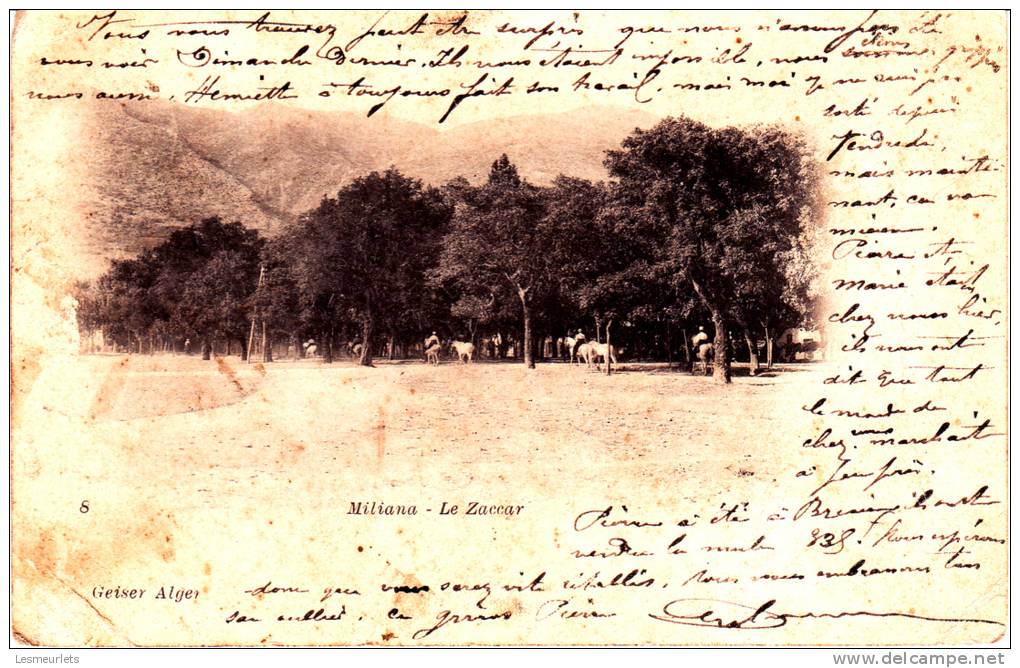 Vous vous trouvez peut être surpris que nous n'avons pas été
vous voir Dimanche Dernier. Ils nous étaient impossible, nous étions
nous aussi, Henriette à toujours fait son travail, mais moi je ne suis pas
sorti depuis
Vendredi,
mais mainte-
nant, ca va
mieux.
Pierre et
marie était
chez nous hier,
ils nous ont
dit que tout
le monde de
chez vous marchait
à peu près.
8
Miliana - Le Zaccar
Pierre à été à ils ont
vendu la mule 235f Nous espérons
Geiser Alger
donc que vous serez vite rétablis. Nous vous embrassons tous
san oublier, ce gros Pierre
Lesmeurlets
www.delcampe.net